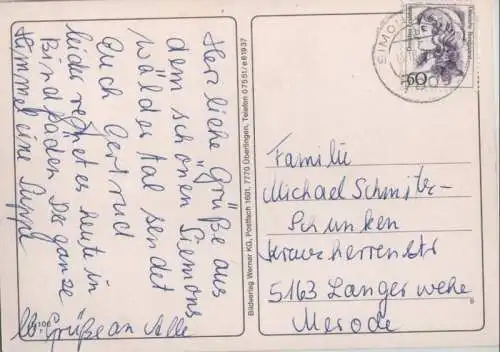 Herzliche Grüße aus
dem schönen Siemons
wälder tal sendet
Euch Gertrud
leider regnet es heute in
Bindfäden Der ganze
Himmel eine Suppe
Grüße an Alle
106
Bildverlag Werner KG, Postfach 1691, 7770 Überlingen, Telefon 07551/e61937
SIMON
60
Familie
Michael Schmitz-
Schunken
Kreuzherrenstr
5163 Langerwehe
Merode